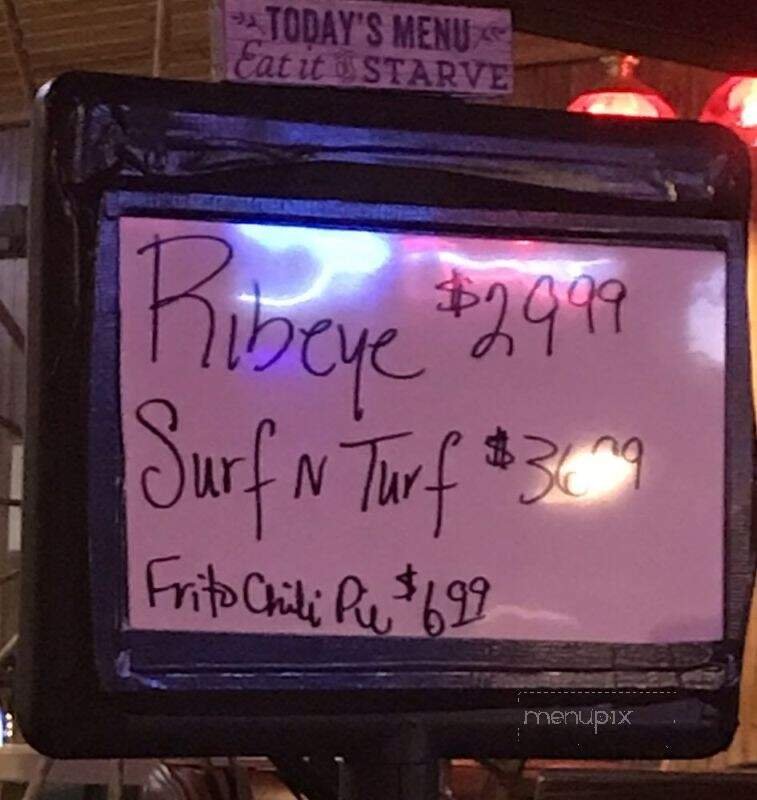 TODAY'S MENU
Eat it or STARVE
Ribeye $2999
Surf N Turf
Frito Chili Pie $699
menupix